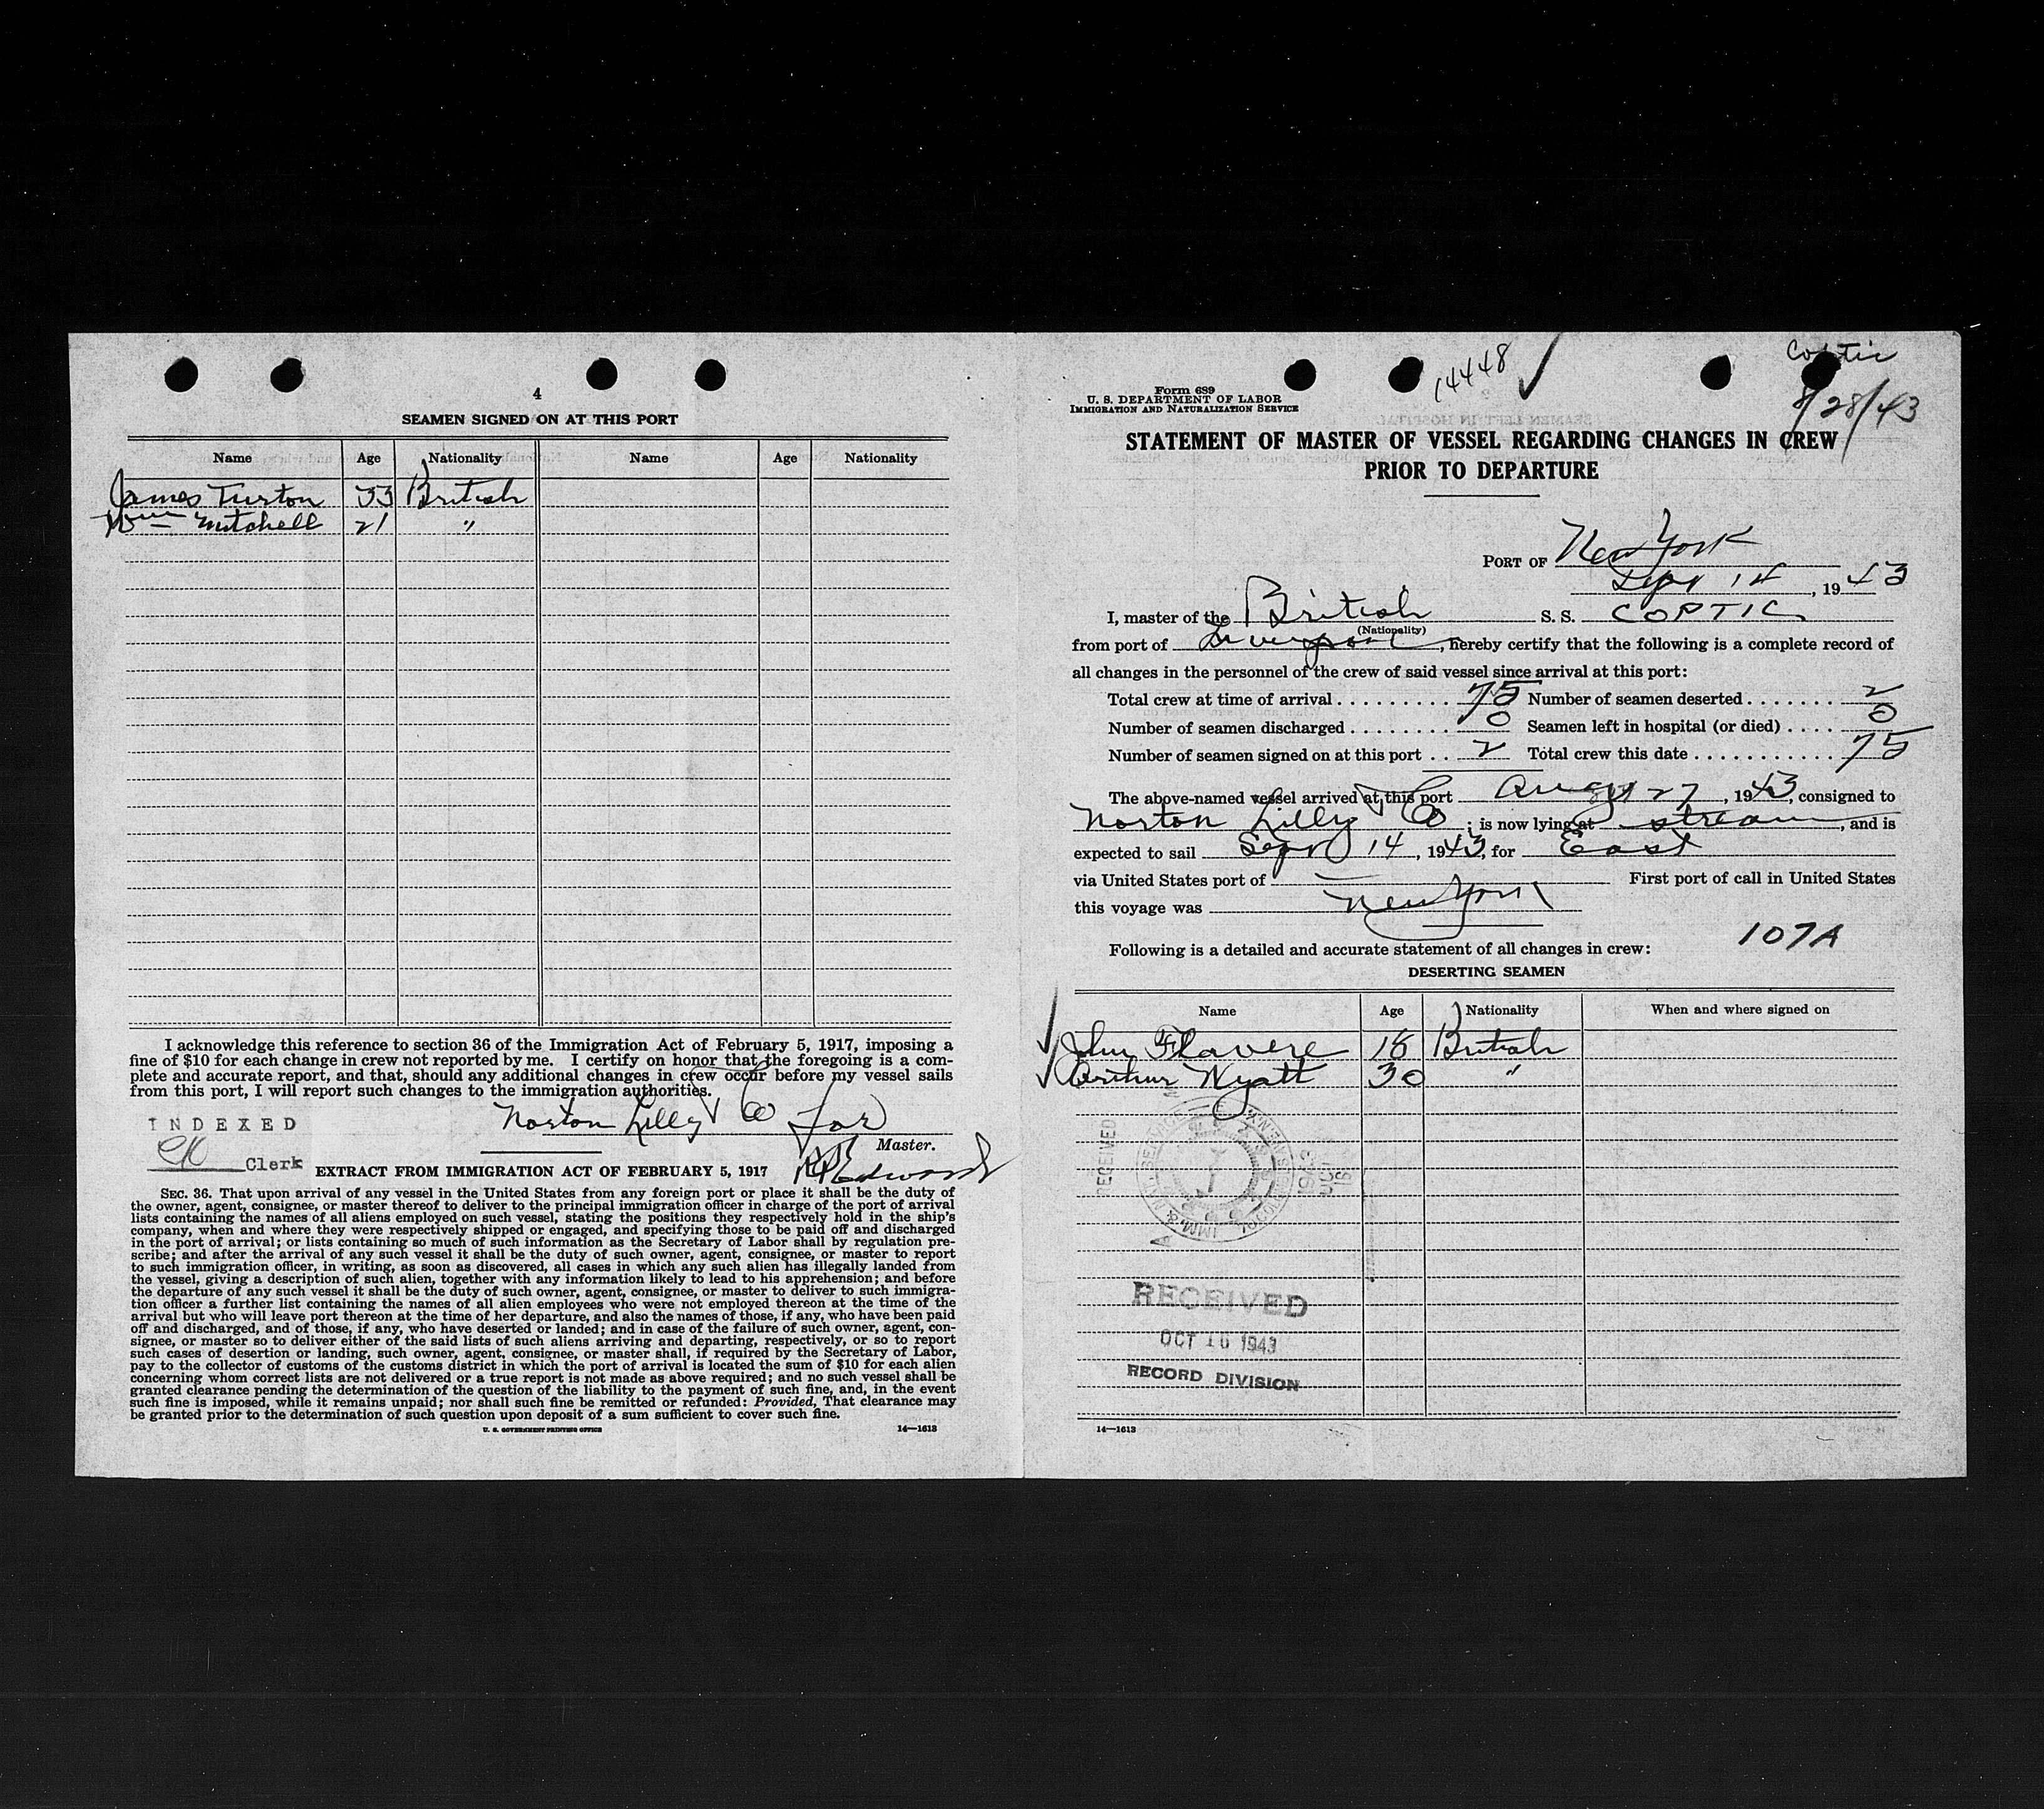 4
SEAMEN SIGNED ON AT THIS PORT
Name Age Nationality Name Age Nationality
James Turston 33 British
Wm Mitchell 21 "
I acknowledge this reference to section 36 of the Immigration Act of February 5, 1917, imposing a
fine of $10 for each change in crew not reported by me. I certify on honor that the foregoing is a com-
plete and accurate report, and that, should any additional changes in crew occur before my vessel sails
from this port, I will report such changes to the immigration authorities.
Norton Lilly & Co for
Master.
INDEXED
Clerk
EXTRACT FROM IMMIGRATION ACT OF FEBRUARY 5, 1917
Edwards
SEC. 36. That upon arrival of any vessel in the United States from any foreign port or place it shall be the duty of
the owner, agent, consignee, or master thereof to deliver to the principal immigration officer in charge of the port of arrival
lists containing the names of all aliens employed on such vessel, stating the positions they respectively hold in the ship's
company, when and where they were respectively shipped or engaged, and specifying those to be paid off and discharged
in the port of arrival; or lists containing so much of such information as the Secretary of Labor shall by regulation pre-
scribe; and after the arrival of any such vessel it shall be the duty of such owner, agent, consignee, or master to report
to such immigration officer, in writing, as soon as discovered, all cases in which any such alien has illegally landed from
the vessel, giving a description of such alien, together with any information likely to lead to his apprehension; and before
the departure of any such vessel it shall be the duty of such owner, agent, consignee, or master to deliver to such immigra-
tion officer a further list containing the names of all alien employees who were not employed thereon at the time of the
arrival but who will leave port thereon at the time of her departure, and also the names of those, if any, who have been paid
off and discharged, and of those, if any, who have deserted or landed; and in case of the failure of such owner, agent, con-
signee, or master so to deliver either of the said lists of such aliens arriving and departing, respectively, or so to report
such cases of desertion or landing, such owner, agent, consignee, or master shall, if required by the Secretary of Labor,
pay to the collector of customs of the customs district in which the port of arrival is located the sum of $10 for each alien
concerning whom correct lists are not delivered or a true report is not made as above required; and no such vessel shall be
granted clearance pending the determination of the question of the liability to the payment of such fine, and, in the event
such fine is imposed, while it remains unpaid; nor shall such fine be remitted or refunded: Provided, That clearance may
be granted prior to the determination of such question upon deposit of a sum sufficient to cover such fine.
U. S. GOVERNMENT PRINTING OFFICE 14—1613
Coptic
8/28/43
14448
Form 689
U. S. DEPARTMENT OF LABOR
IMMIGRATION AND NATURALIZATION SERVICE
STATEMENT OF MASTER OF VESSEL REGARDING CHANGES IN CREW
PRIOR TO DEPARTURE
PORT OF New York
Sept 14, 1943
I, master of the British S. S. COPTIC
(Nationality)
from port of Liverpool, hereby certify that the following is a complete record of
all changes in the personnel of the crew of said vessel since arrival at this port:
Total crew at time of arrival 75 Number of seamen deserted 2
Number of seamen discharged 0 Seamen left in hospital (or died) 0
Number of seamen signed on at this port 2 Total crew this date 75
The above-named vessel arrived at this port August 27, 1943, consigned to
Norton Lilly & Co; is now lying at stream, and is
expected to sail Sept 14, 1943, for East
via United States port of — First port of call in United States
this voyage was New York
107A
Following is a detailed and accurate statement of all changes in crew:
DESERTING SEAMEN
Name Age Nationality When and where signed on
John Flavere 18 British
Arthur Wyatt 30 "
RECEIVED
RECEIVED
OCT 16 1943
RECORD DIVISION
14—1613